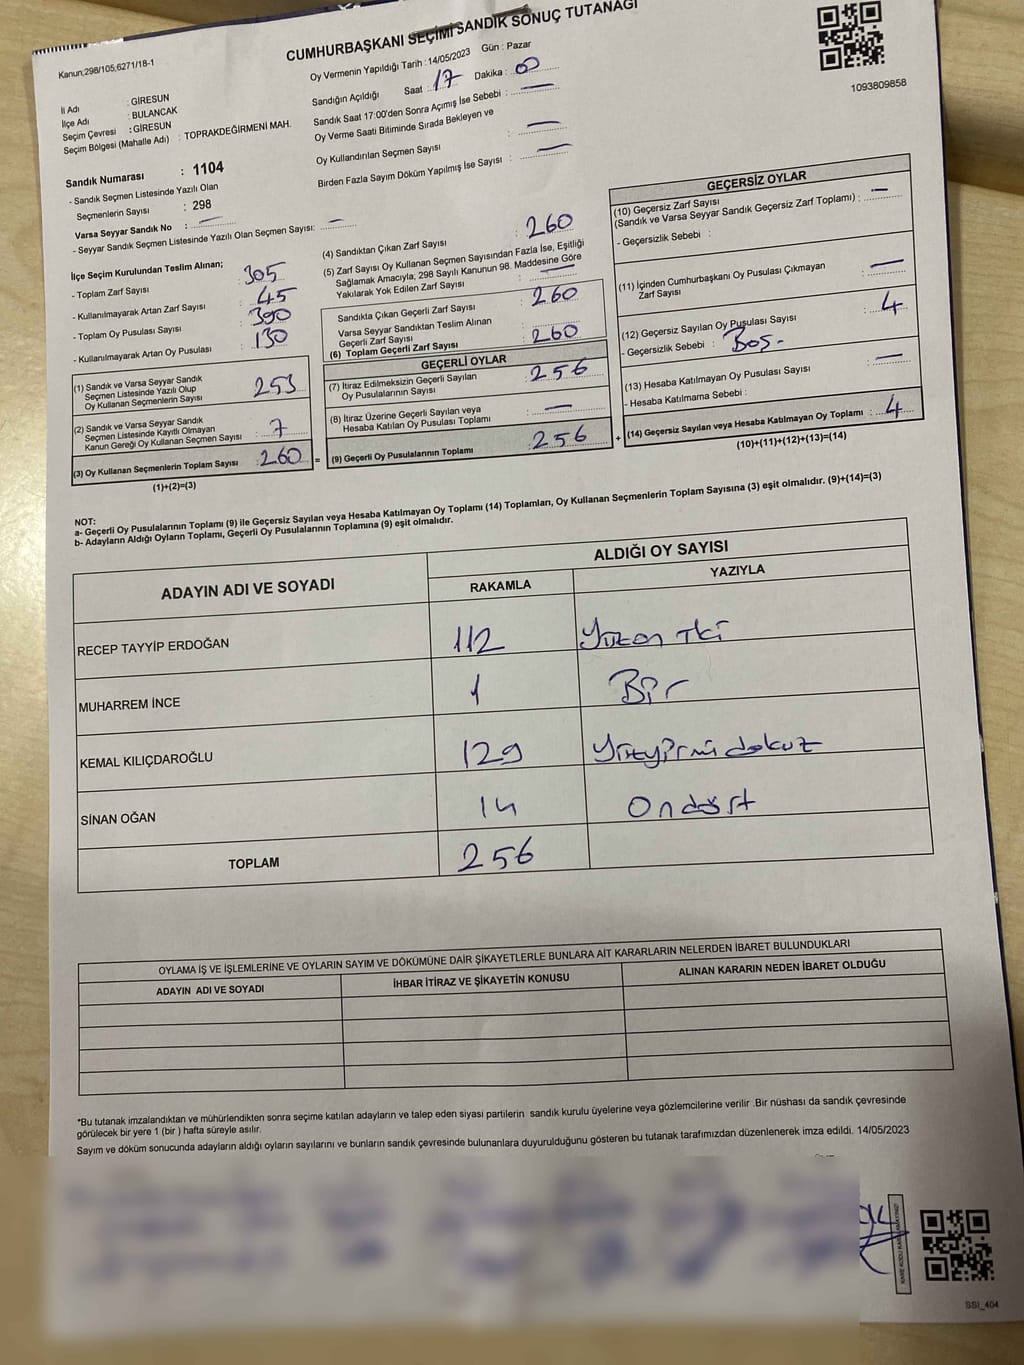 CUMHURBAŞKANI SEÇİMİ SANDIK SONUÇ TUTANAĞI
Kanun;298/105,6271/18-1
Oy Vermenin Yapıldığı Tarih : 14/05/2023 Gün : Pazar
1093809858
İl Adı : GİRESUN
İlçe Adı : BULANCAK
Seçim Çevresi : GİRESUN
Seçim Bölgesi (Mahalle Adı) : TOPRAKDEĞİRMENİ MAH.
Sandığın Açıldığı Saat : 17 Dakika : 00
Sandık Saat 17:00'den Sonra Açımış İse Sebebi : —
Oy Verme Saati Bitiminde Sırada Bekleyen ve
Oy Kullandırılan Seçmen Sayısı : —
Birden Fazla Sayım Döküm Yapılmış İse Sayısı : —
Sandık Numarası : 1104
- Sandık Seçmen Listesinde Yazılı Olan
Seçmenlerin Sayısı : 298
Varsa Seyyar Sandık No : —
- Seyyar Sandık Seçmen Listesinde Yazılı Olan Seçmen Sayısı: —
İlçe Seçim Kurulundan Teslim Alınan;
- Toplam Zarf Sayısı : 305
- Kullanılmayarak Artan Zarf Sayısı : 45
- Toplam Oy Pusulası Sayısı : 390
- Kullanılmayarak Artan Oy Pusulası : 130
(1) Sandık ve Varsa Seyyar Sandık
Seçmen Listesinde Yazılı Olup
Oy Kullanan Seçmenlerin Sayısı : 253
(2) Sandık ve Varsa Seyyar Sandık
Seçmen Listesinde Kayıtlı Olmayan
Kanun Gereği Oy Kullanan Seçmen Sayısı : 7
(3) Oy Kullanan Seçmenlerin Toplam Sayısı : 260
(1)+(2)=(3)
(4) Sandıktan Çıkan Zarf Sayısı : 260
(5) Zarf Sayısı Oy Kullanan Seçmen Sayısından Fazla İse, Eşitliği
Sağlamak Amacıyla, 298 Sayılı Kanunun 98. Maddesine Göre
Yakılarak Yok Edilen Zarf Sayısı : —
Sandıkta Çıkan Geçerli Zarf Sayısı : 260
Varsa Seyyar Sandıktan Teslim Alınan
Geçerli Zarf Sayısı
(6) Toplam Geçerli Zarf Sayısı : 260
GEÇERLİ OYLAR
(7) İtiraz Edilmeksizin Geçerli Sayılan
Oy Pusulalarının Sayısı : 256
(8) İtiraz Üzerine Geçerli Sayılan veya
Hesaba Katılan Oy Pusulası Toplamı : —
= (9) Geçerli Oy Pusulalarının Toplamı : 256
GEÇERSİZ OYLAR
(10) Geçersiz Zarf Sayısı
(Sandık ve Varsa Seyyar Sandık Geçersiz Zarf Toplamı) : —
- Geçersizlik Sebebi :
(11) İçinden Cumhurbaşkanı Oy Pusulası Çıkmayan
Zarf Sayısı : —
(12) Geçersiz Sayılan Oy Pusulası Sayısı : 4
- Geçersizlik Sebebi : Boş-
(13) Hesaba Katılmayan Oy Pusulası Sayısı : —
- Hesaba Katılmama Sebebi :
+ (14) Geçersiz Sayılan veya Hesaba Katılmayan Oy Toplamı : 4
(10)+(11)+(12)+(13)=(14)
NOT:
a- Geçerli Oy Pusulalarının Toplamı (9) ile Geçersiz Sayılan veya Hesaba Katılmayan Oy Toplamı (14) Toplamları, Oy Kullanan Seçmenlerin Toplam Sayısına (3) eşit olmalıdır. (9)+(14)=(3)
b- Adayların Aldığı Oyların Toplamı, Geçerli Oy Pusulalarının Toplamına (9) eşit olmalıdır.
ADAYIN ADI VE SOYADI
ALDIĞI OY SAYISI
RAKAMLA YAZIYLA
RECEP TAYYİP ERDOĞAN 112 Yüzon iki
MUHARREM İNCE 1 Bir
KEMAL KILIÇDAROĞLU 129 Yüzyirmi dokuz
SİNAN OĞAN 14 On dört
TOPLAM 256
OYLAMA İŞ VE İŞLEMLERİNE VE OYLARIN SAYIM VE DÖKÜMÜNE DAİR ŞİKAYETLERLE BUNLARA AİT KARARLARIN NELERDEN İBARET BULUNDUKLARI
ADAYIN ADI VE SOYADI İHBAR İTİRAZ VE ŞİKAYETİN KONUSU ALINAN KARARIN NEDEN İBARET OLDUĞU
*Bu tutanak imzalandıktan ve mühürlendikten sonra seçime katılan adayların ve talep eden siyasi partilerin sandık kurulu üyelerine veya gözlemcilerine verilir .Bir nüshası da sandık çevresinde
görülecek bir yere 1 (bir ) hafta süreyle asılır.
Sayım ve döküm sonucunda adayların aldığı oyların sayılarını ve bunların sandık çevresinde bulunanlara duyurulduğunu gösteren bu tutanak tarafımızdan düzenlenerek imza edildi. 14/05/2023
SSI_404